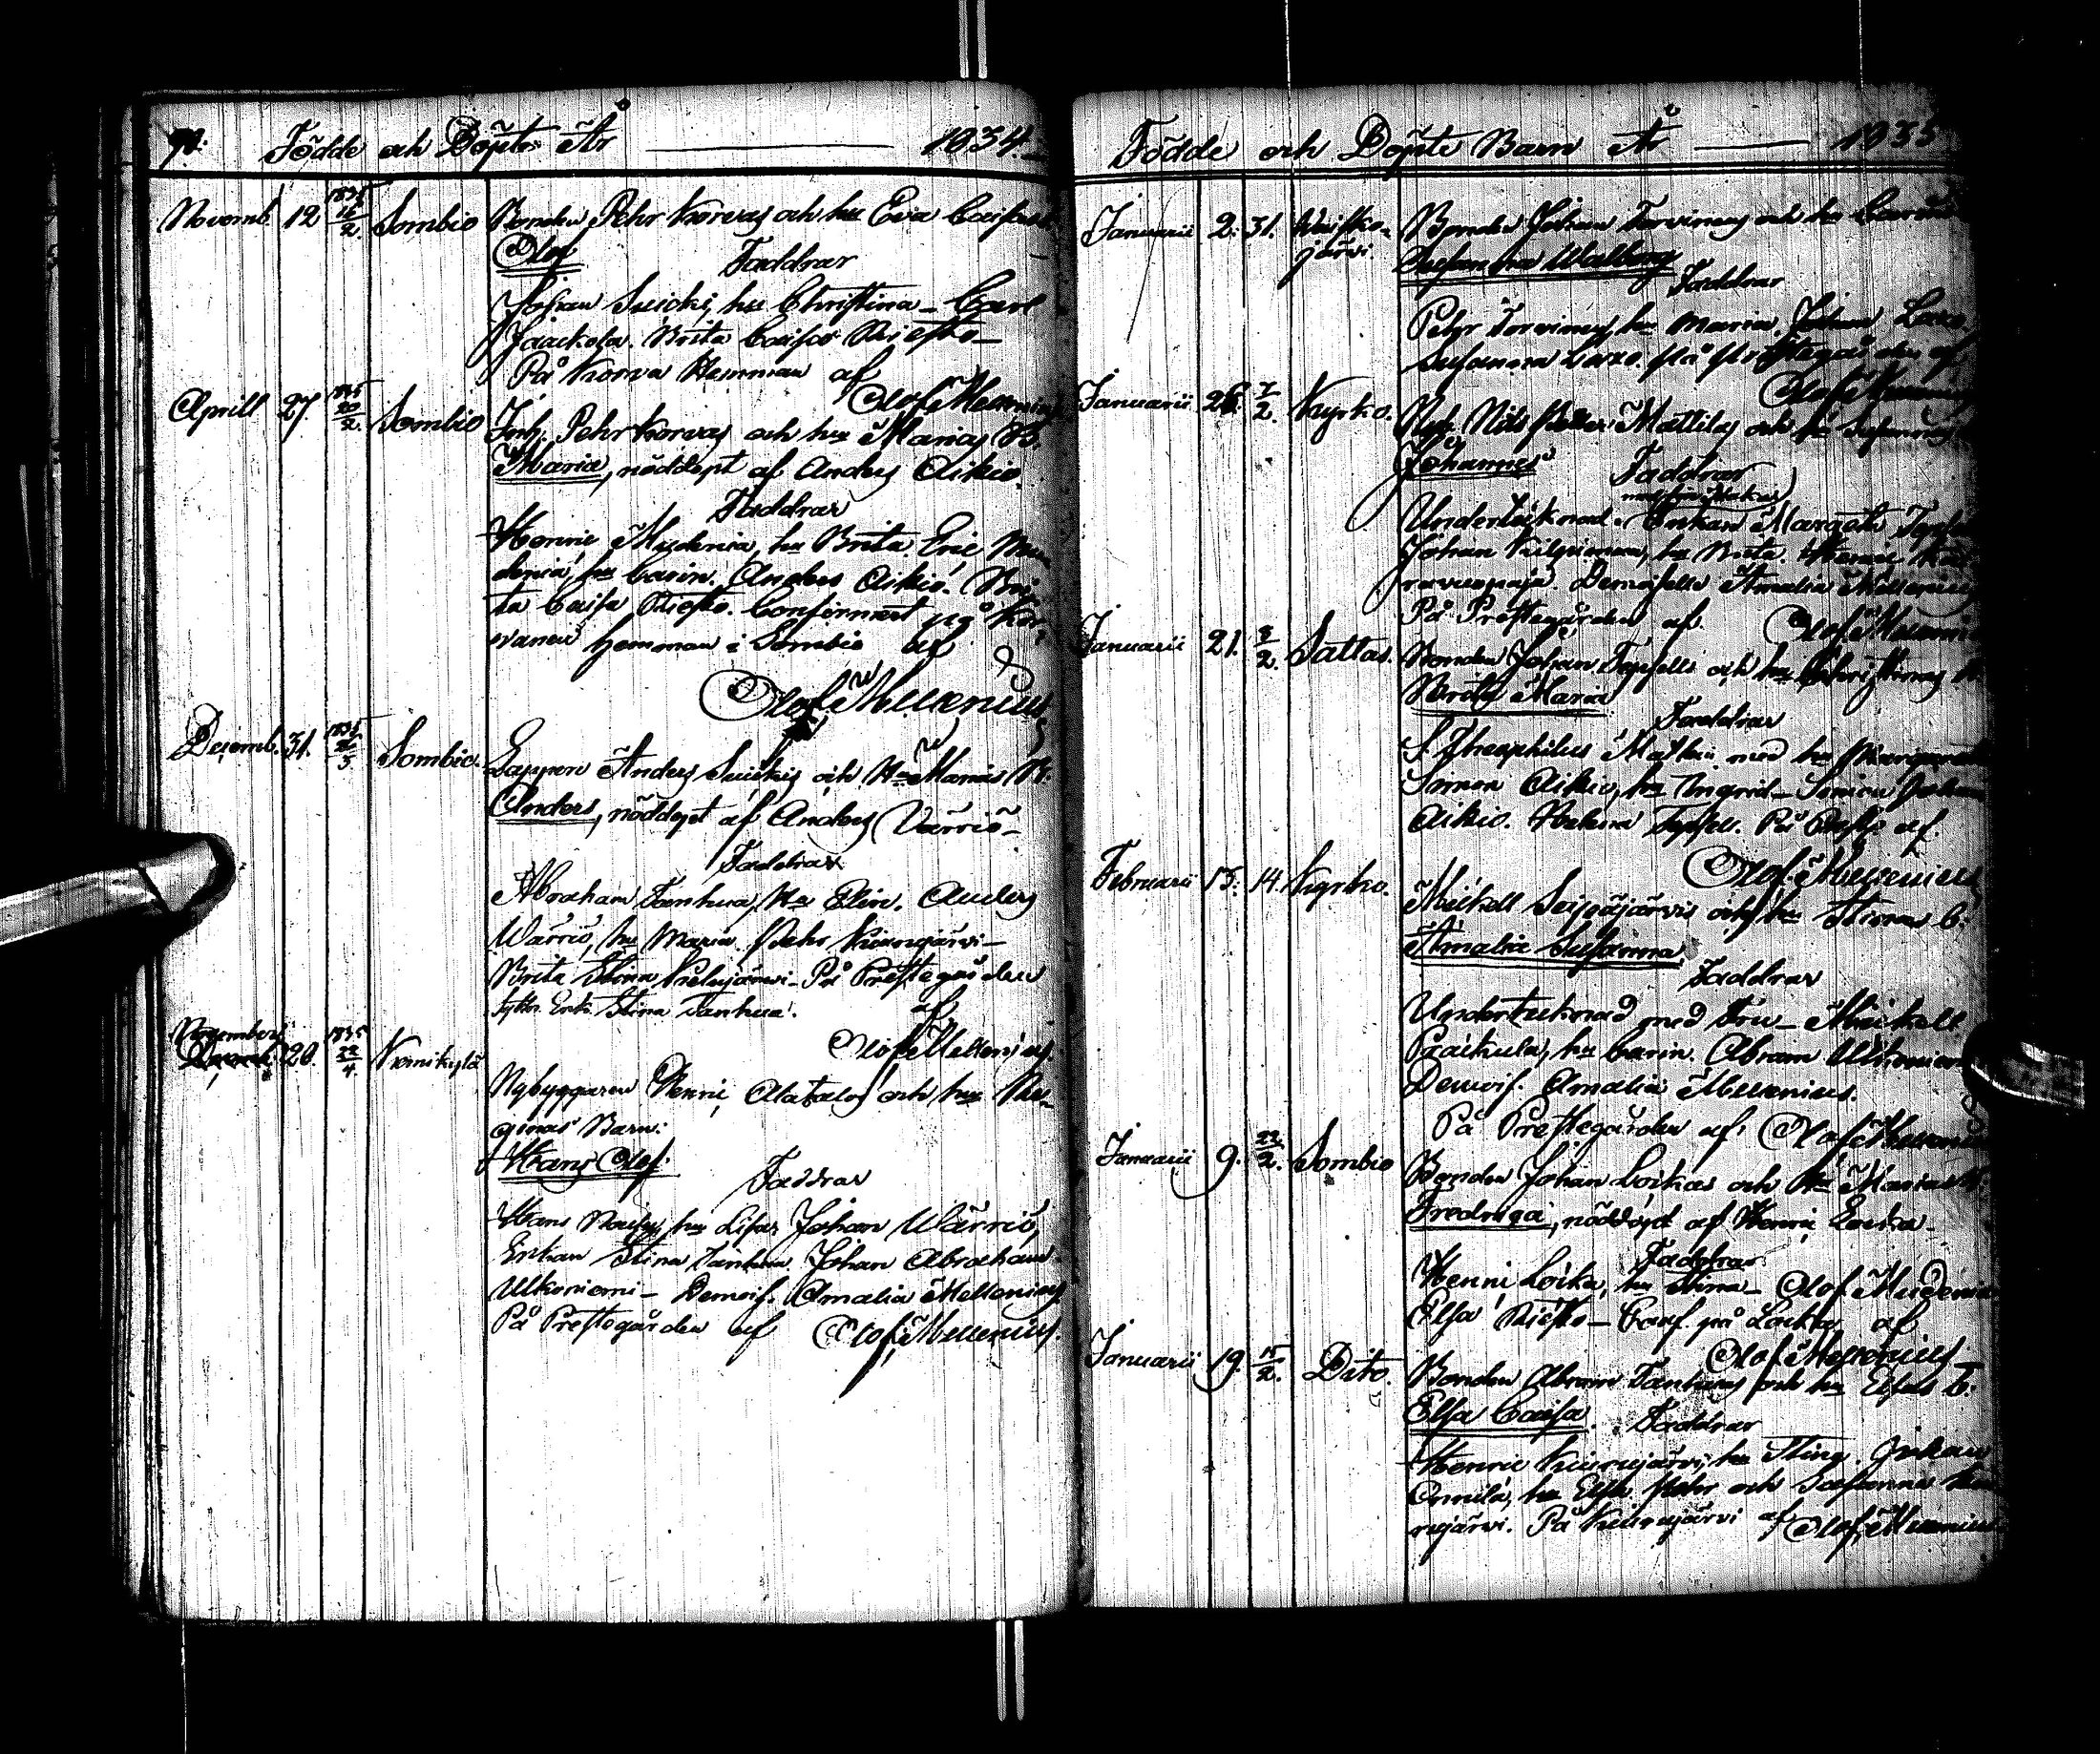 Födde och Döpte År — 1834.
Novemb. 12 1835 16/2. Sombio Bonden Pehr Korvas och hu Eva Caisas
Olof
Faddrar
Johan Suicki, hu Christina – Carl
Jaackola. Brita Caisa Riesto –
På Korva Hemman af
Olof Mellenius
Aprill 27. 1835 20/2. Sombio Inh. Pehr Korvas och hu Marias B.
Maria, nöddöpt af Anders Aikio.
Faddrar
Henric Mudenia, hu Brita, Eric Mu
denia, hu Carin. Anders Aikio. Bri
ta Caisa Riesto. Confirmert på Kor
vanen hemman i Sombio af
Olof Mellenius
Decemb. 31. 1835 Sombio. Lappen Anders Suickis och Hu Marias B.
Anders, nöddöpt af Anders Värriö –
Faddrar
Abraham Tanhua, Hu Elin. Anders
Wärriö, hu Maria. Pehr Kiurujärvi –
Brita Stina Kelujärvi – På Prestegården
Enk. Stina Tanhua. af
Olof Mellenius.
Novembr 20. 1835 22/4. Kemikylä
Nybyggaren Henric Alatalos och hu Re-
ginas Barn:
Hans Olof.
Faddrar
Hans hu Lisa. Johan Wärriö,
Enkan Stina Tanhua. Johan Abraham
Ulkoniemi – Demois. Amalia Mellenius
På Prestegården af Olof Mellenius.
Födde och Döpte Barn År — 1835
Januarii 2. 31. Bonden Johan Torvinens och hu
järvi. Susanna Walborg
Faddrar
Pehr Torvinen, hu Maria. Johan
Susanna på Prästegården af
Olof Mellenius
Januarii 7/2. Kyrko. Nils Mattilas och hu
Johannes
Faddrar
Undertecknad. Enkan Margeta
Johan Kilpimaa, hu Brita. Henric
Demoiselle Amalia Mellenius
På Prestegården af Olof Mellenius
Januarii 21. 8/2. Sattas. Bonden Johan och hu Christinas B.
Brita Maria
Faddrar
Theophilus med hu Margareta
Simon Aikio, hu Ingrid – Johan
Aikio. Helena På af.
Olof Mellenius
Februarii 13. 14. Kyrko. Mickell Seipäjärvis och hu Stinas B.
Amalia Susanna.
Faddrar
Undertecknad med Fru – Mickell
Paakula, hu Carin. Abram Ulkoniemi
Demois. Amalia Mellenius.
På Prestegården af Olof Mellenius
Januarii 9. 22/2. Sombio Bonden Johan Lockas och Hu Marias B.
Fredriga, nöddöpt af Henric Locka –
Faddrar
Henric Locka, hu Stina – Olof Mudenia
Elsa Riesto – Conf. på Locka af
Olof Mellenius
Januarii 19. 15/2. Dito. Bonden Abram Tanhuas och hu Elsas B.
Elsa Caisa. Faddrar
Henric Kiurujärvi, hu Stina. Johan
hu Elsa. Pehr och Susanna Kiu
rujärvi. På Kiurujärvi af Olof Mellenius